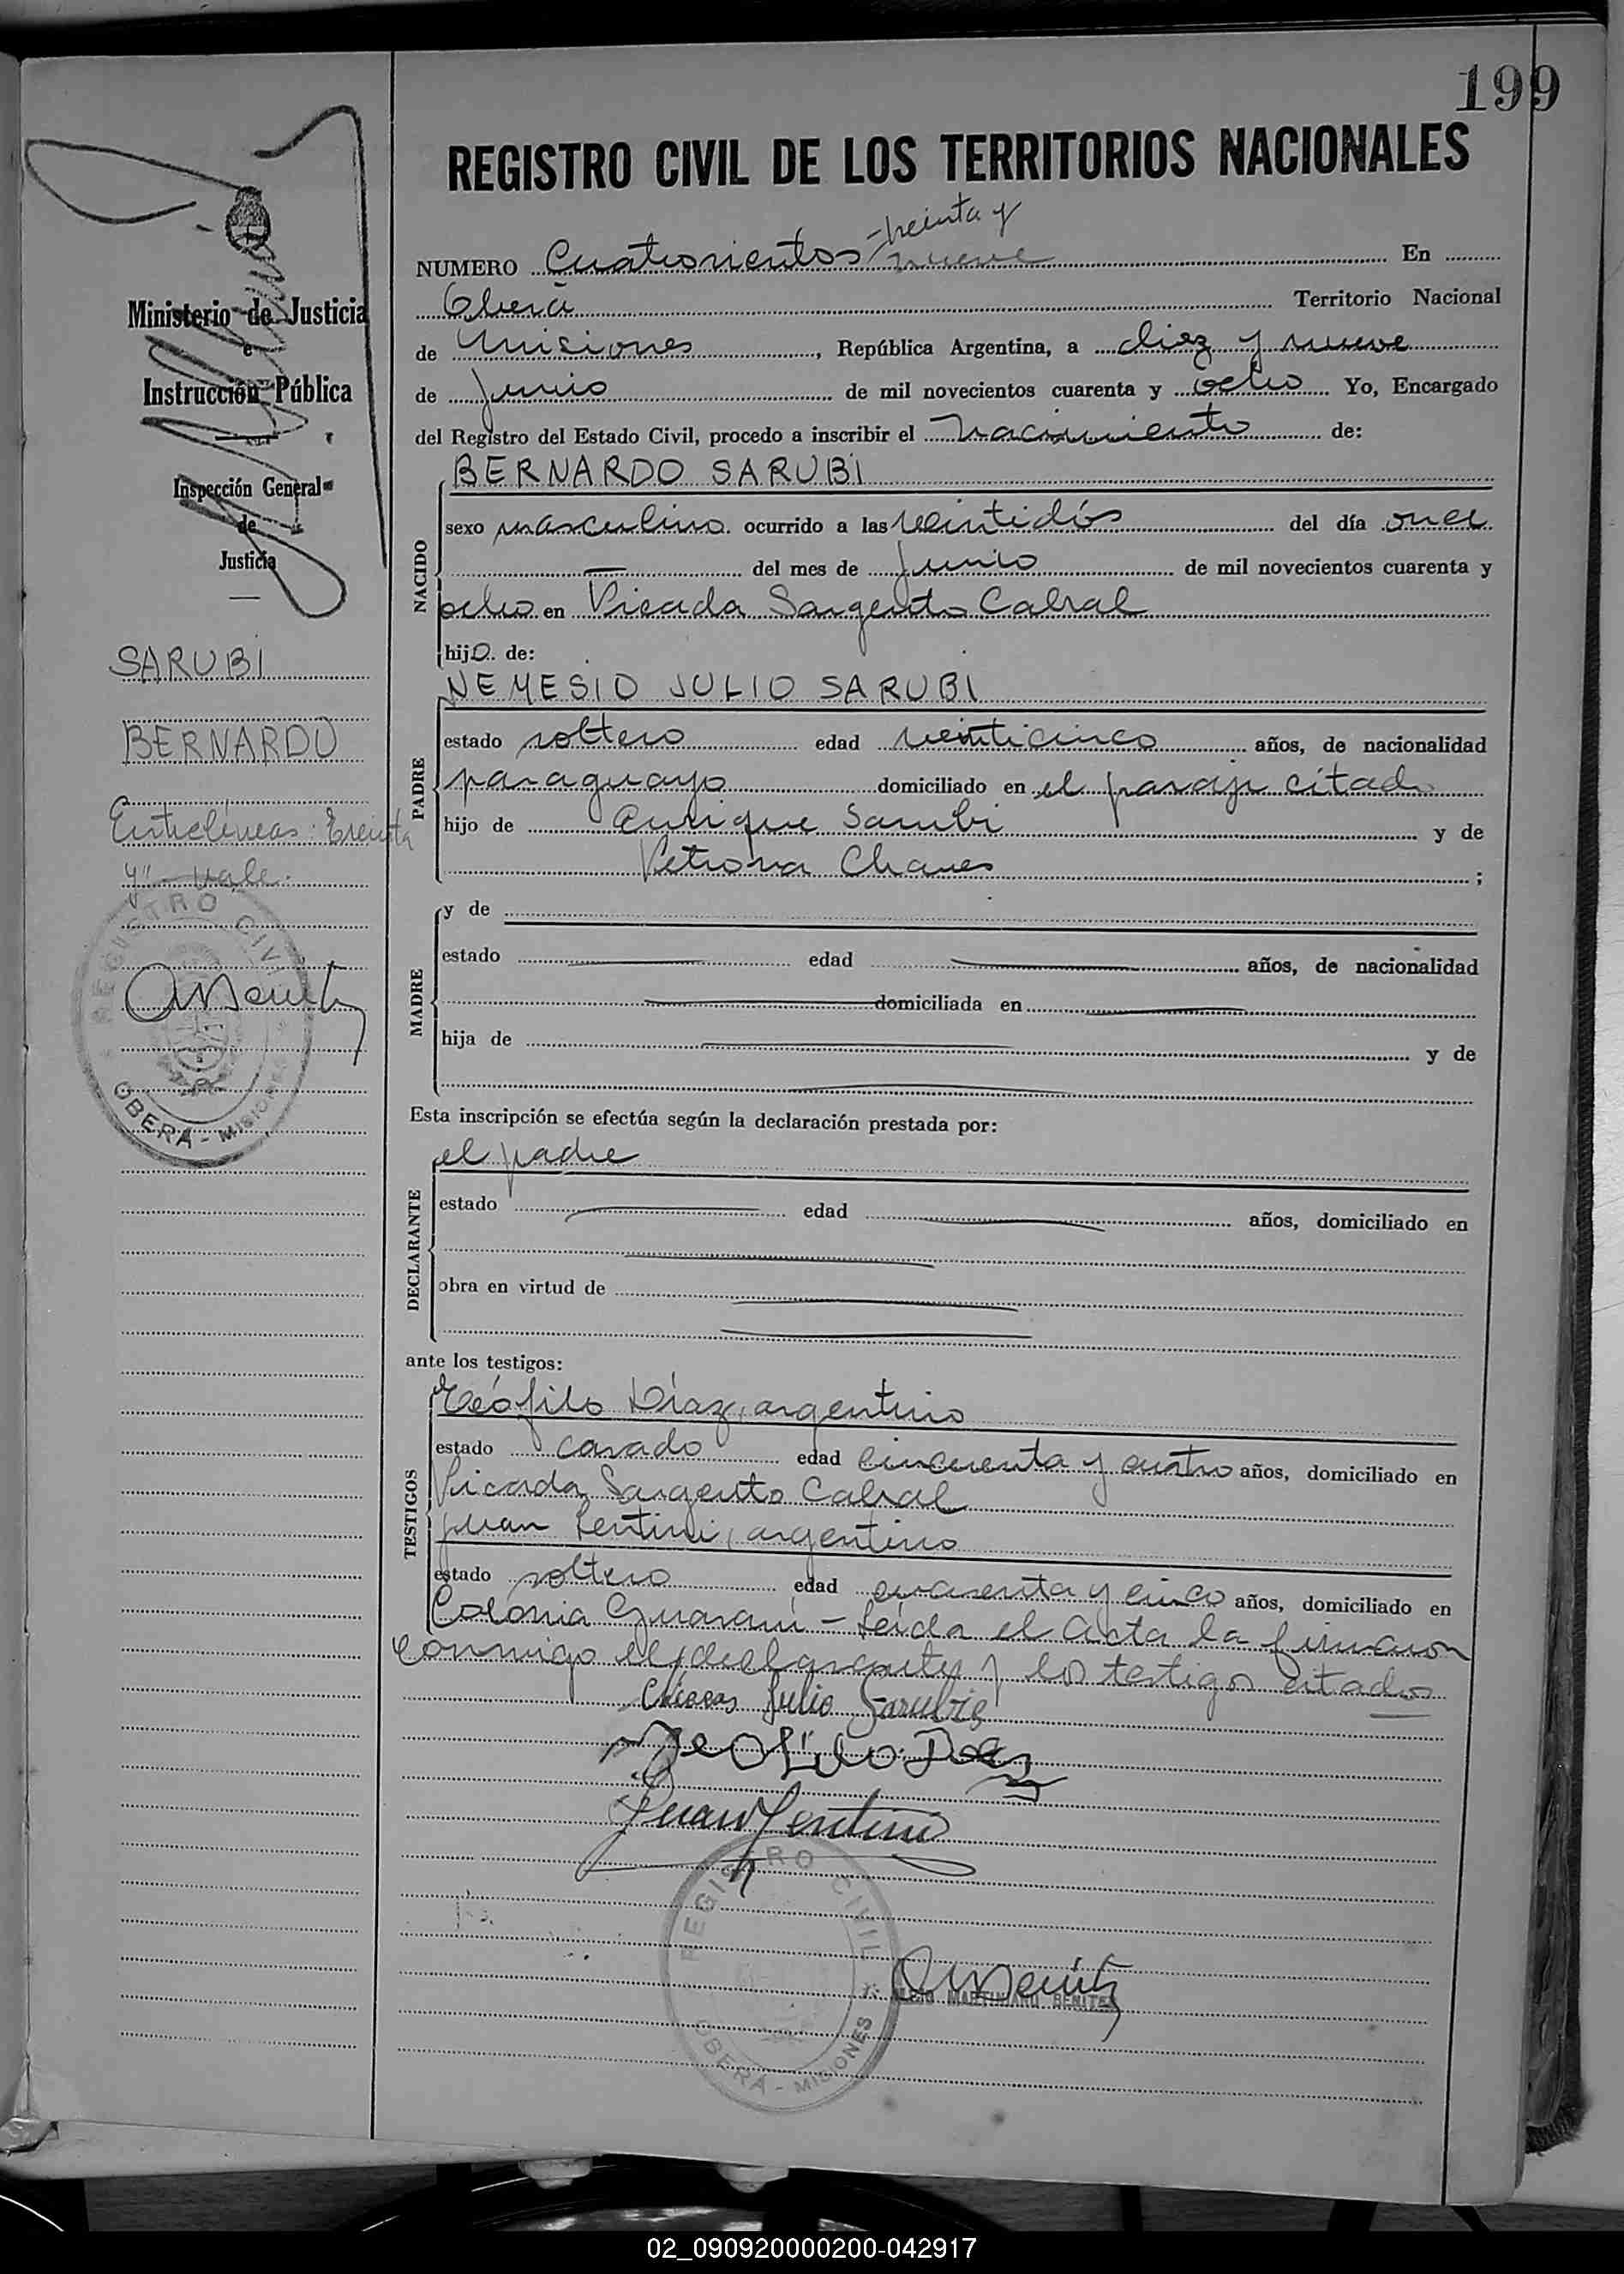 199
REGISTRO CIVIL DE LOS TERRITORIOS NACIONALES
treinta y
NUMERO Cuatrocientos nueve En
Oberá Territorio Nacional
de Misiones, República Argentina, a diez y nueve
de junio de mil novecientos cuarenta y ocho Yo, Encargado
del Registro del Estado Civil, procedo a inscribir el nacimiento de:
NACIDO
BERNARDO SARUBI
sexo masculino ocurrido a las veintidós del día once
— del mes de junio de mil novecientos cuarenta y
ocho en Picada Sargento Cabral
hijo de:
PADRE
NEMESIO JULIO SARUBI
estado soltero edad veinticinco años, de nacionalidad
paraguayo domiciliado en el paraje citado
hijo de Enrique Sarubi y de
Petrona Chaves ;
MADRE
y de
estado — edad — años, de nacionalidad
— domiciliada en —
hija de — y de
—
Esta inscripción se efectúa según la declaración prestada por:
DECLARANTE
el padre
estado — edad — años, domiciliado en
—
obra en virtud de —
—
ante los testigos:
TESTIGOS
Teófilo Díaz, argentino
estado casado edad cincuenta y cuatro años, domiciliado en
Picada Sargento Cabral
Juan Lentini, argentino
estado soltero edad cuarenta y cinco años, domiciliado en
Colonia Guaraní – Leída el acta la firmaron
conmigo el declarante y los testigos citados
Julio Sarubi
Teofilo Diaz
Juan Lentini
REGISTRO CIVIL
OBERA - MISIONES
MARTINIANO BENITEZ
Ministerio de Justicia
e
Instrucción Pública
Inspección General
de
Justicia
—
SARUBI
BERNARDO
Entrelíneas: "treinta
y" – vale.
REGISTRO CIVIL
OBERA - MISIONES
02_090920000200-042917